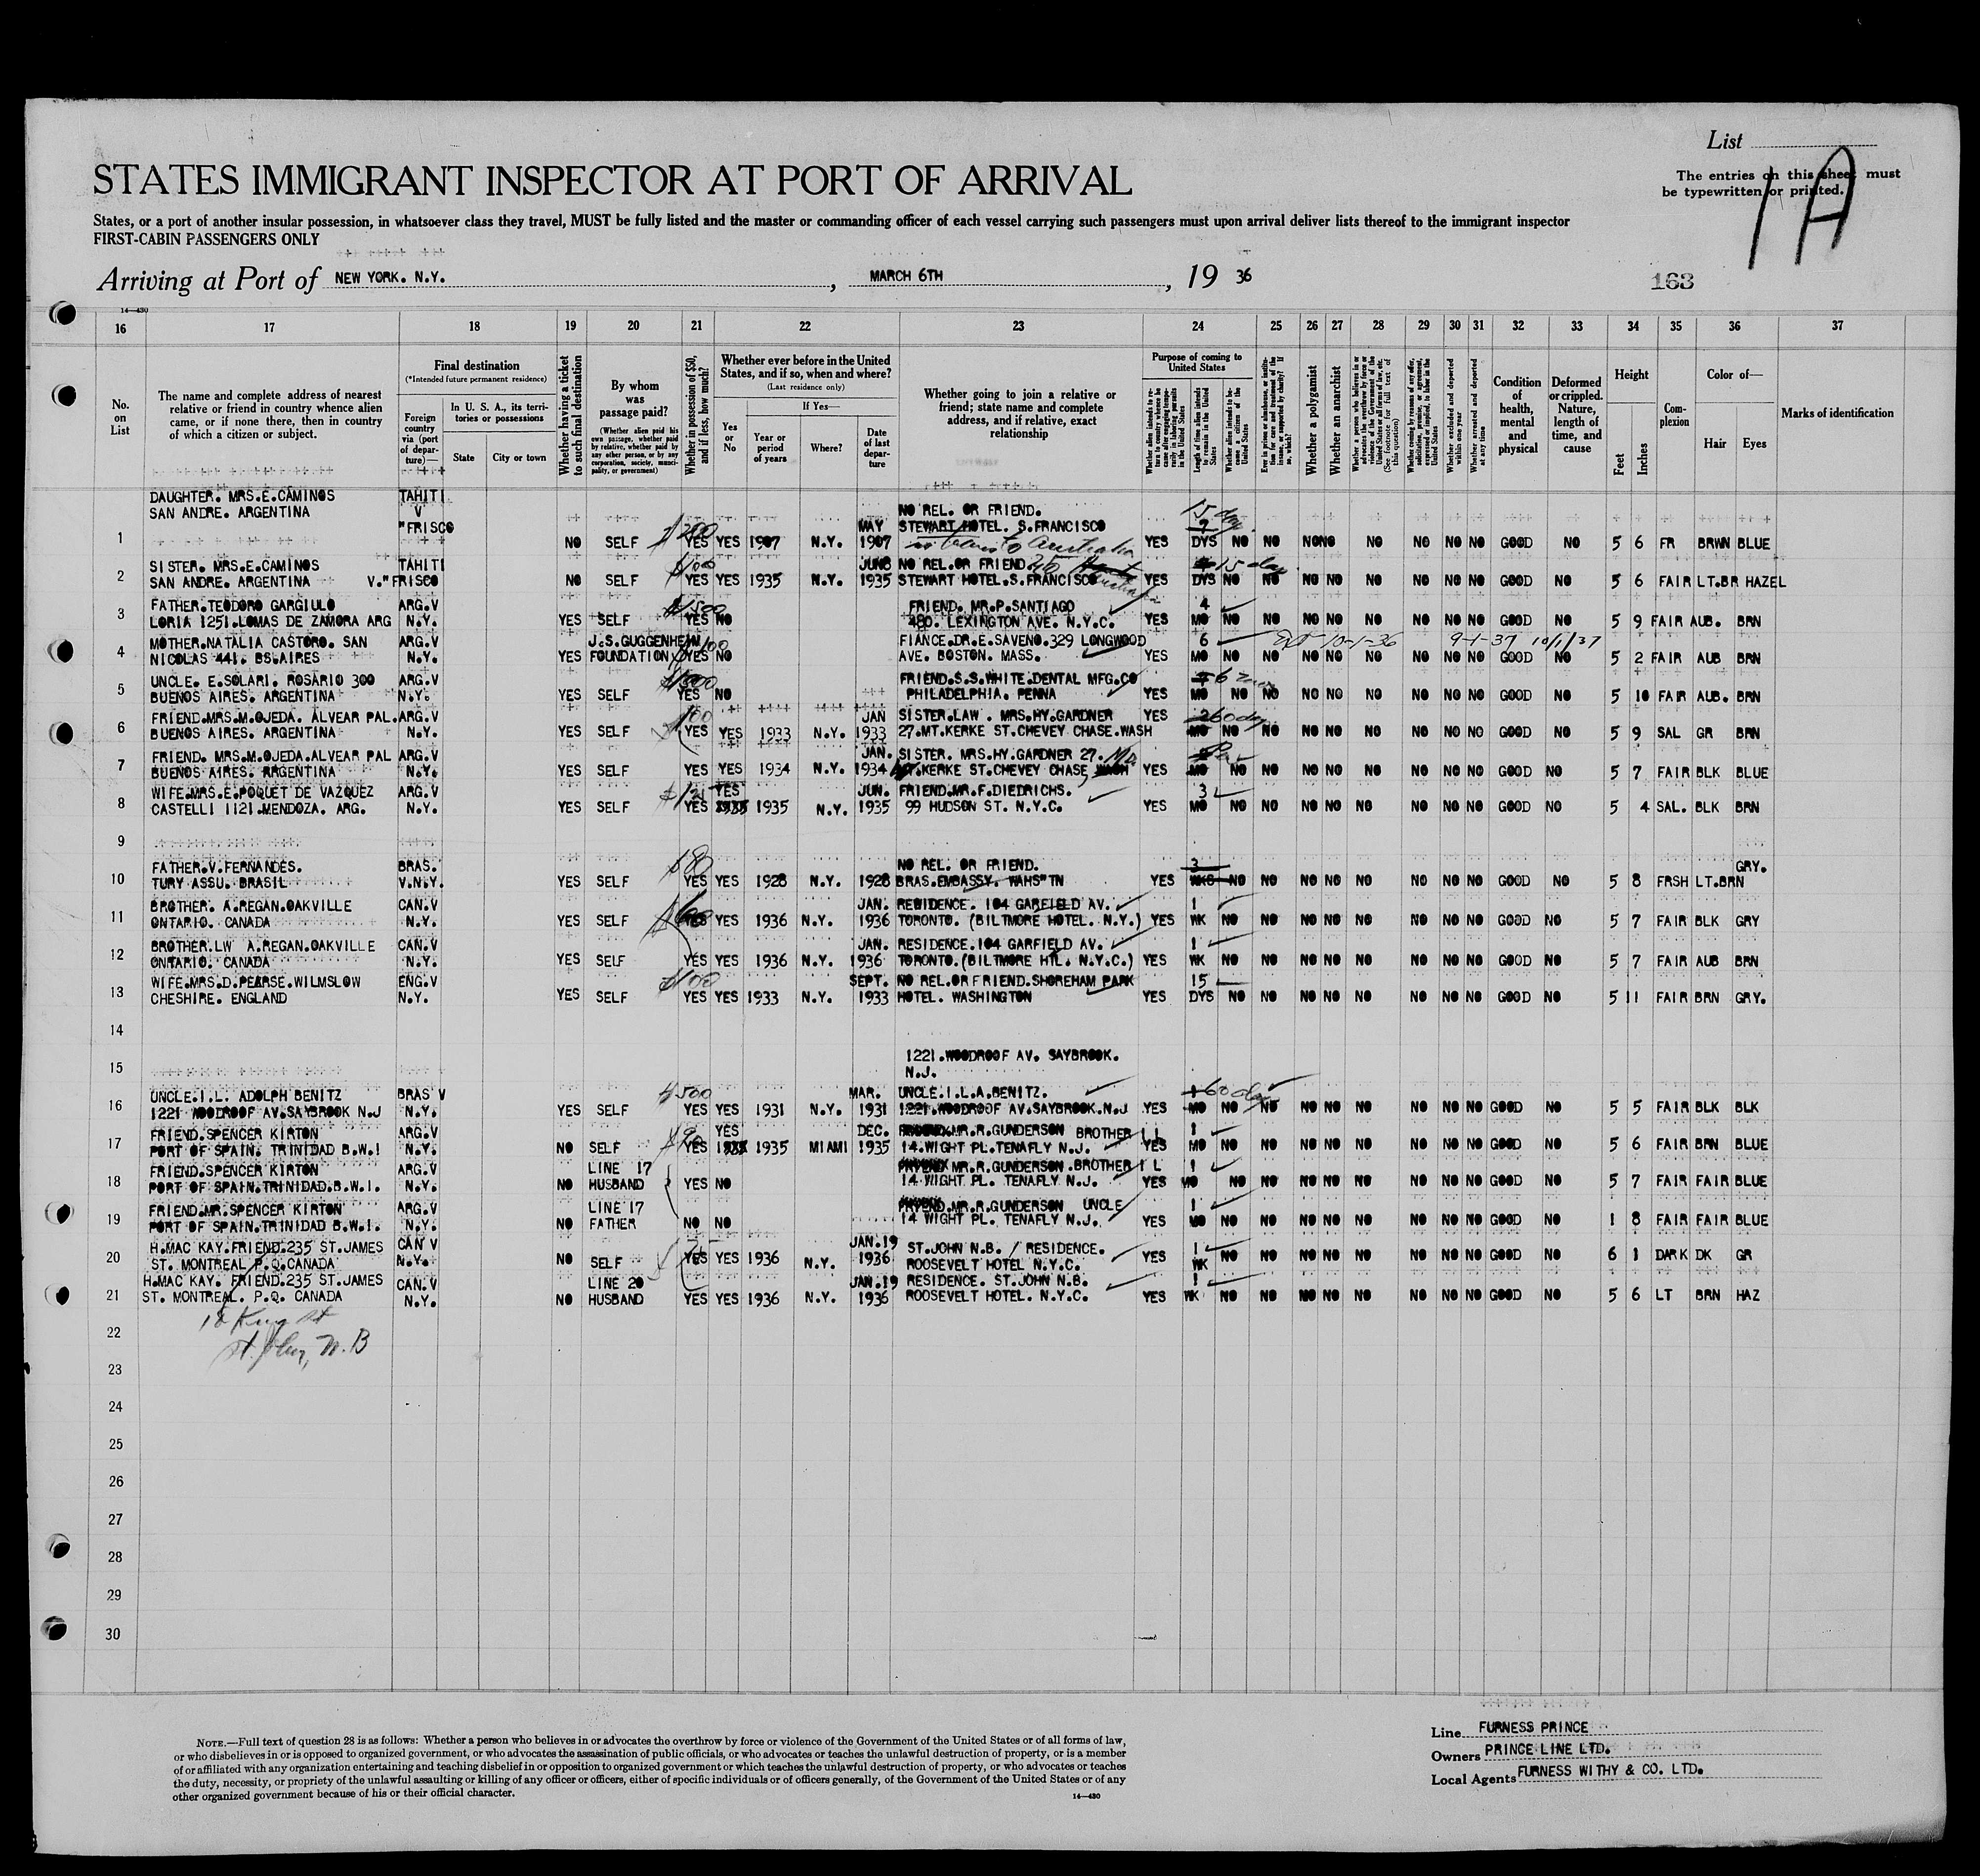 List
1A
The entries on this sheet must
be typewritten or printed.
STATES IMMIGRANT INSPECTOR AT PORT OF ARRIVAL
States, or a port of another insular possession, in whatsoever class they travel, MUST be fully listed and the master or commanding officer of each vessel carrying such passengers must upon arrival deliver lists thereof to the immigrant inspector
FIRST-CABIN PASSENGERS ONLY
Arriving at Port of NEW YORK. N.Y. , MARCH 6TH , 19 36
163
14—430
16 17 18 19 20 21 22 23 24 25 26 27 28 29 30 31 32 33 34 35 36 37
No. on List
The name and complete address of nearest relative or friend in country whence alien came, or if none there, then in country of which a citizen or subject.
Final destination
(*Intended future permanent residence)
Foreign country via (port of departure)—
In U. S. A., its territories or possessions
State
City or town
Whether having a ticket to such final destination
By whom was passage paid?
(Whether alien paid his own passage, whether paid by relative, whether paid by any other person, or by any corporation, society, municipality, or government)
Whether in possession of $50, and if less, how much?
Whether ever before in the United States, and if so, when and where?
(Last residence only)
If Yes—
Yes or No
Year or period of years
Where?
Date of last departure
Whether going to join a relative or friend; state name and complete address, and if relative, exact relationship
Purpose of coming to United States
Whether alien intends to return to country whence he came after engaging temporarily in laboring pursuits in the United States
Length of time alien intends to remain in the United States
Whether alien intends to become a citizen of the United States
Ever in prison or almshouse, or institution for care and treatment of the insane, or supported by charity? If so, which?
Whether a polygamist
Whether an anarchist
Whether excluded and deported within one year
Whether arrested and deported at any time
Condition of health, mental and physical
Deformed or crippled. Nature, length of time, and cause
Height
Feet
Inches
Complexion
Color of—
Hair
Eyes
Marks of identification
DAUGHTER. MRS.E.CAMINOS TAHITI
SAN ANDRE. ARGENTINA V NO REL. OR FRIEND. 15
"FRISCO MAY STEWART HOTEL. S.FRANCISCO
1 NO SELF YES YES 1907 N.Y. 1907 YES DYS NO NO NO NO NO NO NO NO GOOD NO 5 6 FR BRWN BLUE
SISTER. MRS.E.CAMINOS TAHITI JUNE NO REL.OR FRIEND 15 days
2 SAN ANDRE. ARGENTINA V."FRISCO NO SELF YES YES 1935 N.Y. 1935 STEWART HOTEL.S.FRANCISCO YES DYS NO NO NO NO NO NO NO NO GOOD NO 5 6 FAIR LT.BR HAZEL
FATHER.TEODORO GARGIULO ARG.V FRIEND. MR.P.SANTIAGO 4
3 LORIA 1251.LOMAS DE ZAMORA ARG N.Y. YES SELF YES NO 480. LEXINGTON AVE. N.Y.C. YES MO NO NO NO NO NO NO NO NO GOOD NO 5 9 FAIR AUB. BRN
MOTHER.NATALIA CASTORO. SAN ARG.V J.S.GUGGENHEIM FIANCE.DR.E.SAVENO.329 LONGWOOD 6 10-1-36 9-1-37 10/1/37
4 NICOLAS 441. BS.AIRES N.Y. YES FOUNDATION YES NO AVE. BOSTON. MASS. YES MO NO NO NO NO NO NO NO NO GOOD NO 5 2 FAIR AUB BRN
UNCLE. E.SOLARI. ROSARIO 300 ARG.V FRIEND.S.S.WHITE.DENTAL MFG.CO 6
5 BUENOS AIRES. ARGENTINA N.Y. YES SELF YES NO PHILADELPHIA. PENNA YES MO NO NO NO NO NO NO NO NO GOOD NO 5 10 FAIR AUB. BRN
FRIEND.MRS.M.OJEDA. ALVEAR PAL. ARG.V $100 JAN SISTER.LAW . MRS.HY.GARDNER YES 60 days
6 BUENOS AIRES. ARGENTINA N.Y. YES SELF YES YES 1933 N.Y. 1933 27.MT.KERKE ST.CHEVEY CHASE.WASH MO NO NO NO NO NO NO NO NO GOOD NO 5 9 SAL GR BRN
FRIEND. MRS.M.OJEDA.ALVEAR PAL ARG.V JAN. SISTER. MRS.HY.GARDNER 27. Md
7 BUENOS AIRES. ARGENTINA N.Y. YES SELF YES YES 1934 N.Y. 1934 MT.KERKE ST.CHEVEY CHASE, WASH YES MO NO NO NO NO NO NO NO NO GOOD NO 5 7 FAIR BLK BLUE
WIFE.MRS.E.POQUET DE VAZQUEZ ARG.V YES JUN. FRIEND.MR.F.DIEDRICHS. 3
8 CASTELLI 1121.MENDOZA. ARG. N.Y. YES SELF YES 1935 1935 N.Y. 1935 99 HUDSON ST. N.Y.C. YES MO NO NO NO NO NO NO NO NO GOOD NO 5 4 SAL. BLK BRN
9
FATHER.V.FERNANDES. BRAS. $80 NO REL. OR FRIEND. 3 GRY.
10 TURY ASSU. BRASIL V.N.Y. YES SELF YES YES 1928 N.Y. 1928 BRAS.EMBASSY. WAHS"TN YES WKS NO NO NO NO NO NO NO NO GOOD NO 5 8 FRSH LT.BRN
BROTHER. A.REGAN.OAKVILLE CAN.V JAN. RESIDENCE. 104 GARFIELD AV. 1
11 ONTARIO. CANADA N.Y. YES SELF YES YES 1936 N.Y. 1936 TORONTO. (BILTMORE HOTEL. N.Y.) YES WK NO NO NO NO NO NO NO NO GOOD NO 5 7 FAIR BLK GRY
BROTHER.LW A.REGAN.OAKVILLE CAN.V JAN. RESIDENCE.104 GARFIELD AV. 1
12 ONTARIO. CANADA N.Y. YES SELF YES YES 1936 N.Y. 1936 TORONTO.(BILTMORE HTL. N.Y.C.) YES WK NO NO NO NO NO NO NO NO GOOD NO 5 7 FAIR AUB BRN
WIFE.MRS.D.PEARSE.WILMSLOW ENG.V $100 SEPT. NO REL.OR FRIEND.SHOREHAM PARK 15
13 CHESHIRE. ENGLAND N.Y. YES SELF YES YES 1933 N.Y. 1933 HOTEL. WASHINGTON YES DYS NO NO NO NO NO NO NO NO GOOD NO 5 11 FAIR BRN GRY.
14
1221.WOODROOF AV. SAYBROOK.
15 N.J.
UNCLE.I.L. ADOLPH BENITZ BRAS V $500 MAR. UNCLE.I.L.A.BENITZ. 60 days
16 1221 WOODROOF AV.SAYBROOK N.J N.Y. YES SELF YES YES 1931 N.Y. 1931 1221.WOODROOF AV.SAYBROOK.N.J YES MO NO NO NO NO NO NO NO NO GOOD NO 5 5 FAIR BLK BLK
FRIEND.SPENCER KIRTON ARG.V YES DEC. MR.R.GUNDERSON BROTHER I L 1
17 PORT OF SPAIN. TRINIDAD B.W.I N.Y. NO SELF YES 1935 MIAMI 1935 14.WIGHT PL.TENAFLY N.J. YES MO NO NO NO NO NO NO NO NO GOOD NO 5 6 FAIR BRN BLUE
FRIEND.SPENCER KIRTON ARG.V LINE 17 MR.R.GUNDERSON.BROTHER I L 1
18 PORT OF SPAIN.TRINIDAD.B.W.I. N.Y. NO HUSBAND YES NO 14.WIGHT PL. TENAFLY N.J. YES MO NO NO NO NO NO NO NO NO GOOD NO 5 7 FAIR FAIR BLUE
FRIEND.MR.SPENCER KIRTON ARG.V LINE 17 MR.R.GUNDERSON UNCLE 1
19 PORT OF SPAIN.TRINIDAD B.W.I. N.Y. NO FATHER NO NO 14 WIGHT PL. TENAFLY N.J. YES MO NO NO NO NO NO NO NO NO GOOD NO 1 8 FAIR FAIR BLUE
H.MAC KAY.FRIEND.235 ST.JAMES CAN V JAN.19 ST.JOHN N.B. / RESIDENCE. 1
20 ST. MONTREAL P.Q.CANADA N.Y. NO SELF YES YES 1936 N.Y. 1936 ROOSEVELT HOTEL N.Y.C. YES WK NO NO NO NO NO NO NO NO GOOD NO 6 1 DARK DK GR
H.MAC KAY. FRIEND.235 ST.JAMES CAN.V LINE 20 JAN.19 RESIDENCE. ST.JOHN N.B. 1
21 ST. MONTREAL. P.Q. CANADA N.Y. NO HUSBAND YES YES 1936 N.Y. 1936 ROOSEVELT HOTEL. N.Y.C. YES WK NO NO NO NO NO NO NO NO GOOD NO 5 6 LT BRN HAZ
18 King St
22 St. John, N.B
23
24
25
26
27
28
29
30
NOTE.—Full text of question 28 is as follows: Whether a person who believes in or advocates the overthrow by force or violence of the Government of the United States or of all forms of law,
or who disbelieves in or is opposed to organized government, or who advocates the assassination of public officials, or who advocates or teaches the unlawful destruction of property, or is a member
of or affiliated with any organization entertaining and teaching disbelief in or opposition to organized government or which teaches the unlawful destruction of property, or who advocates or teaches
the duty, necessity, or propriety of the unlawful assaulting or killing of any officer or officers, either of specific individuals or of officers generally, of the Government of the United States or of any
other organized government because of his or their official character.
14—430
Line FURNESS PRINCE
Owners PRINCE LINE LTD.
Local Agents FURNESS WITHY & CO. LTD.